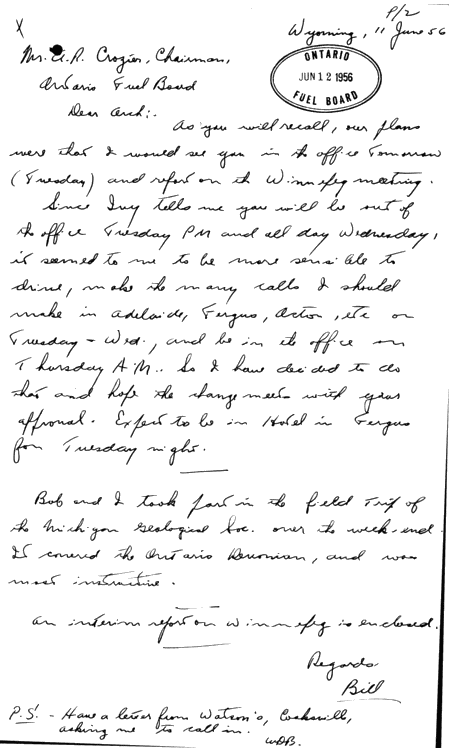 P/2
Wyoming, 11 June 56
X
Mr. A.R. Crozier, Chairman,
Ontario Fuel Board
ONTARIO
JUN 12 1956
FUEL BOARD
Dear Arch:.
As you will recall, our plans
were that I would see you in the office Tomorrow
(Tuesday) and report on the Winnipeg meeting.
Since Ivy tells me you will be out of
the office Tuesday PM and all day Wednesday,
it seemed to me to be more sensible to
drive, make the many calls I should
make in Adelaide, Fergus, Acton, etc on
Tuesday - Wed., and be in the office on
Thursday A.M. So I have decided to do
that and hope the change meets with your
approval. Expect to be in Hotel in Fergus
for Tuesday night.
Bob and I took part in the field Trip of
the Michigan Geological Soc. over the week-end.
It covered the Ontario Devonian, and was
most instructive.
An interim report on Winnipeg is enclosed.
Regards
Bill
P.S. - Have a letter from Watson's, Cooksville,
asking me to call in.
WDB.